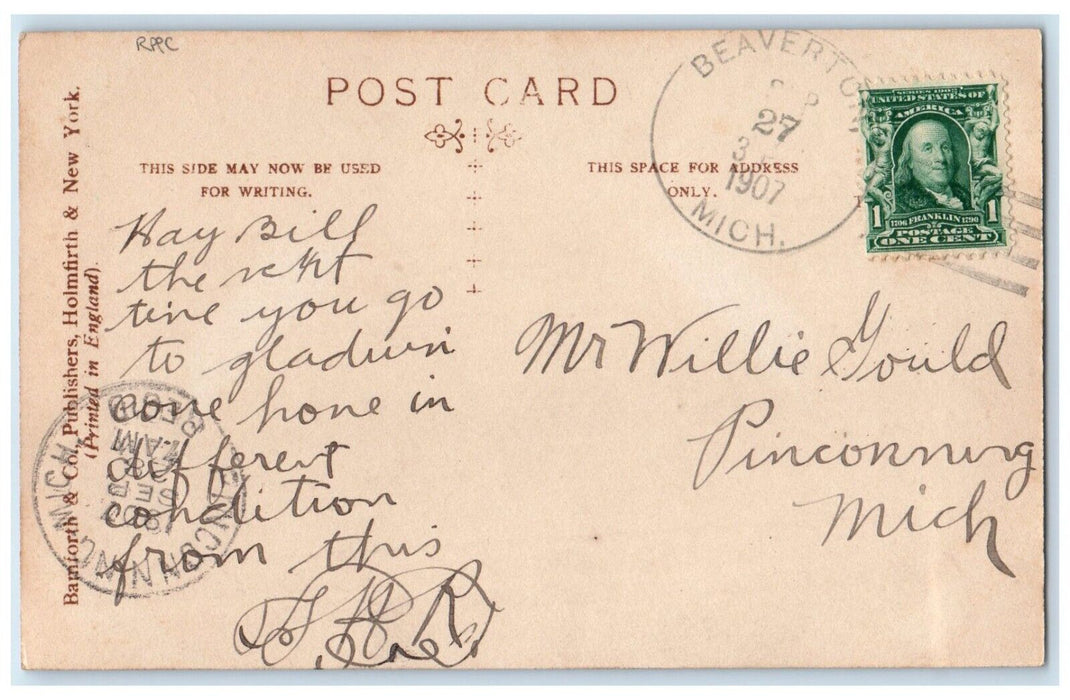 RPPC
POST CARD
THIS SIDE MAY NOW BE USED
FOR WRITING.
THIS SPACE FOR ADDRESS
ONLY.
Bamforth & Co., Publishers, Holmfirth & New York.
(Printed in England).
BEAVERTON
SEP
27
1907
MICH.
SERIES 1902
UNITED STATES OF
AMERICA
1706 FRANKLIN 1790
1 1
POSTAGE
ONE CENT
Hay Bill
the next
time you go
to gladwin
come home in
different
condition
from this
Mr Willie Gould
Pinconning
Mich
PINCONNING MICH.
REC'D
AM
SEP
1907